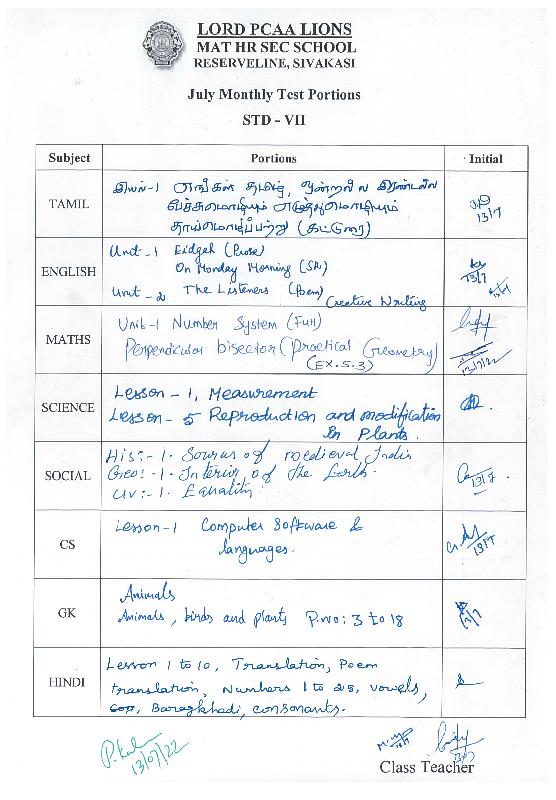 LORD PCAA LIONS
MAT HR SEC SCHOOL
RESERVELINE, SIVAKASI
July Monthly Test Portions
STD - VII
Subject Portions Initial
TAMIL இயல்-1 எங்கள் தமிழ், ஒன்றல்ல இரண்டல்ல
பேச்சுமொழியும் எழுத்துமொழியும்
தாய்மொழிப்பற்று (கட்டுரை)
13/7
ENGLISH Unit-1 Eidgah (Prose)
On Monday Morning (SR)
Unit-2 The Listeners (Poem)
Creative Writing
13/7
MATHS Unit-1 Number System (Full)
Perpendicular bisector (Practical Geometry)
(EX.5.3)
13/7/22
SCIENCE Lesson - 1, Measurement
Lesson - 5 Reproduction and modification
in Plants.
SOCIAL His:- 1. Sources of medieval India
Geo:- 1. Interior of the Earth.
civ:- 1. Equality.
13/7
CS Lesson-1 Computer Software &
languages.
13/7
GK Animals
Animals, birds and plants P.no: 3 to 18
HINDI Lesson 1 to 10, Translation, Poem
translation, Numbers 1 to 25, vowels,
Baragkhadi, consonants.
13/07/22
Class Teacher